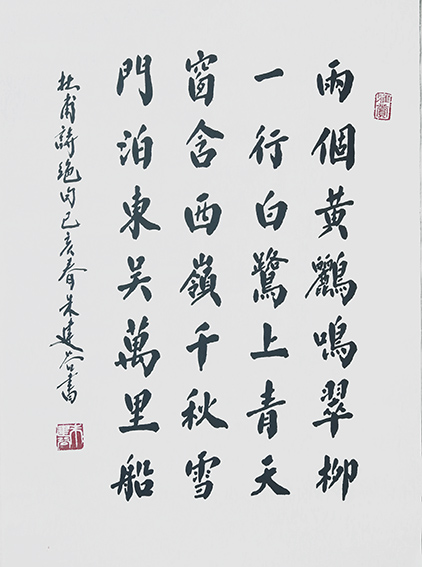 兩個黃鸝鳴翠柳
一行白鷺上青天
窗含西嶺千秋雪
門泊東吳萬里船
杜甫詩絕句己亥春朱建書